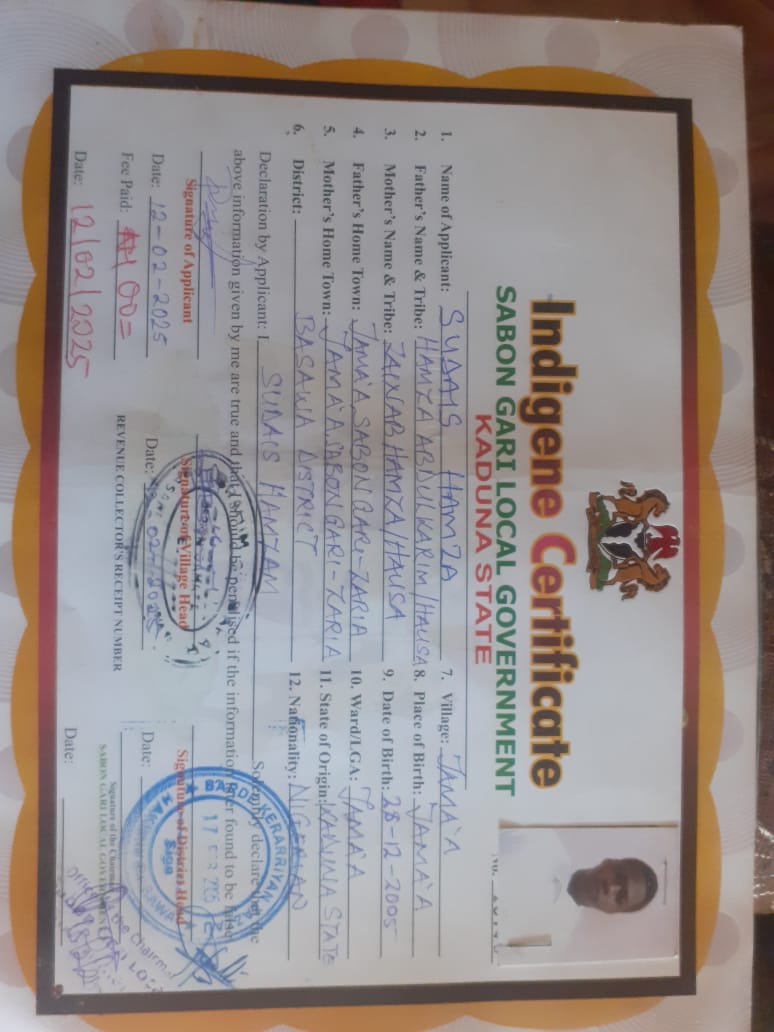 Indigene Certificate
SABON GARI LOCAL GOVERNMENT
KADUNA STATE
No.
1. Name of Applicant: SUDAIS HAMZA
2. Father's Name & Tribe: HAMZA ABDULKARIM/HAUSA
3. Mother's Name & Tribe: ZAINAB HAMZA/HAUSA
4. Father's Home Town: JAMA'A SABON GARI-ZARIA
5. Mother's Home Town: JAMA'A, SABON GARI-ZARIA
6. District: BASAWA DISTRICT
7. Village: JAMA'A
8. Place of Birth: JAMA'A
9. Date of Birth: 28-12-2005
10. Ward/LGA: JAMA'A
11. State of Origin: KADUNA STATE
12. Nationality: NIGERIAN
Declaration by Applicant: I SUDAIS HAMZA Solemnly declare that the
above information given by me are true and that I should be penalised if the information ever found to be false
Signature of Applicant
Date: 12-02-2025
Signature of Village Head
Date: -02-2025
Signature of District Head
Date:
BARDE KERARRIYAN
Fee Paid: 100=
REVENUE COLLECTOR'S RECEIPT NUMBER
Signature of the Chairman
SABON GARI LOCAL GOVERNMENT
Date: 12/02/2025
Date: